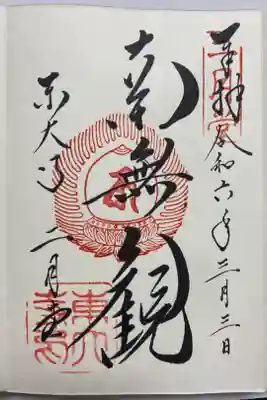 奉拝 令和六年三月三日
南無観
東大寺 二月堂